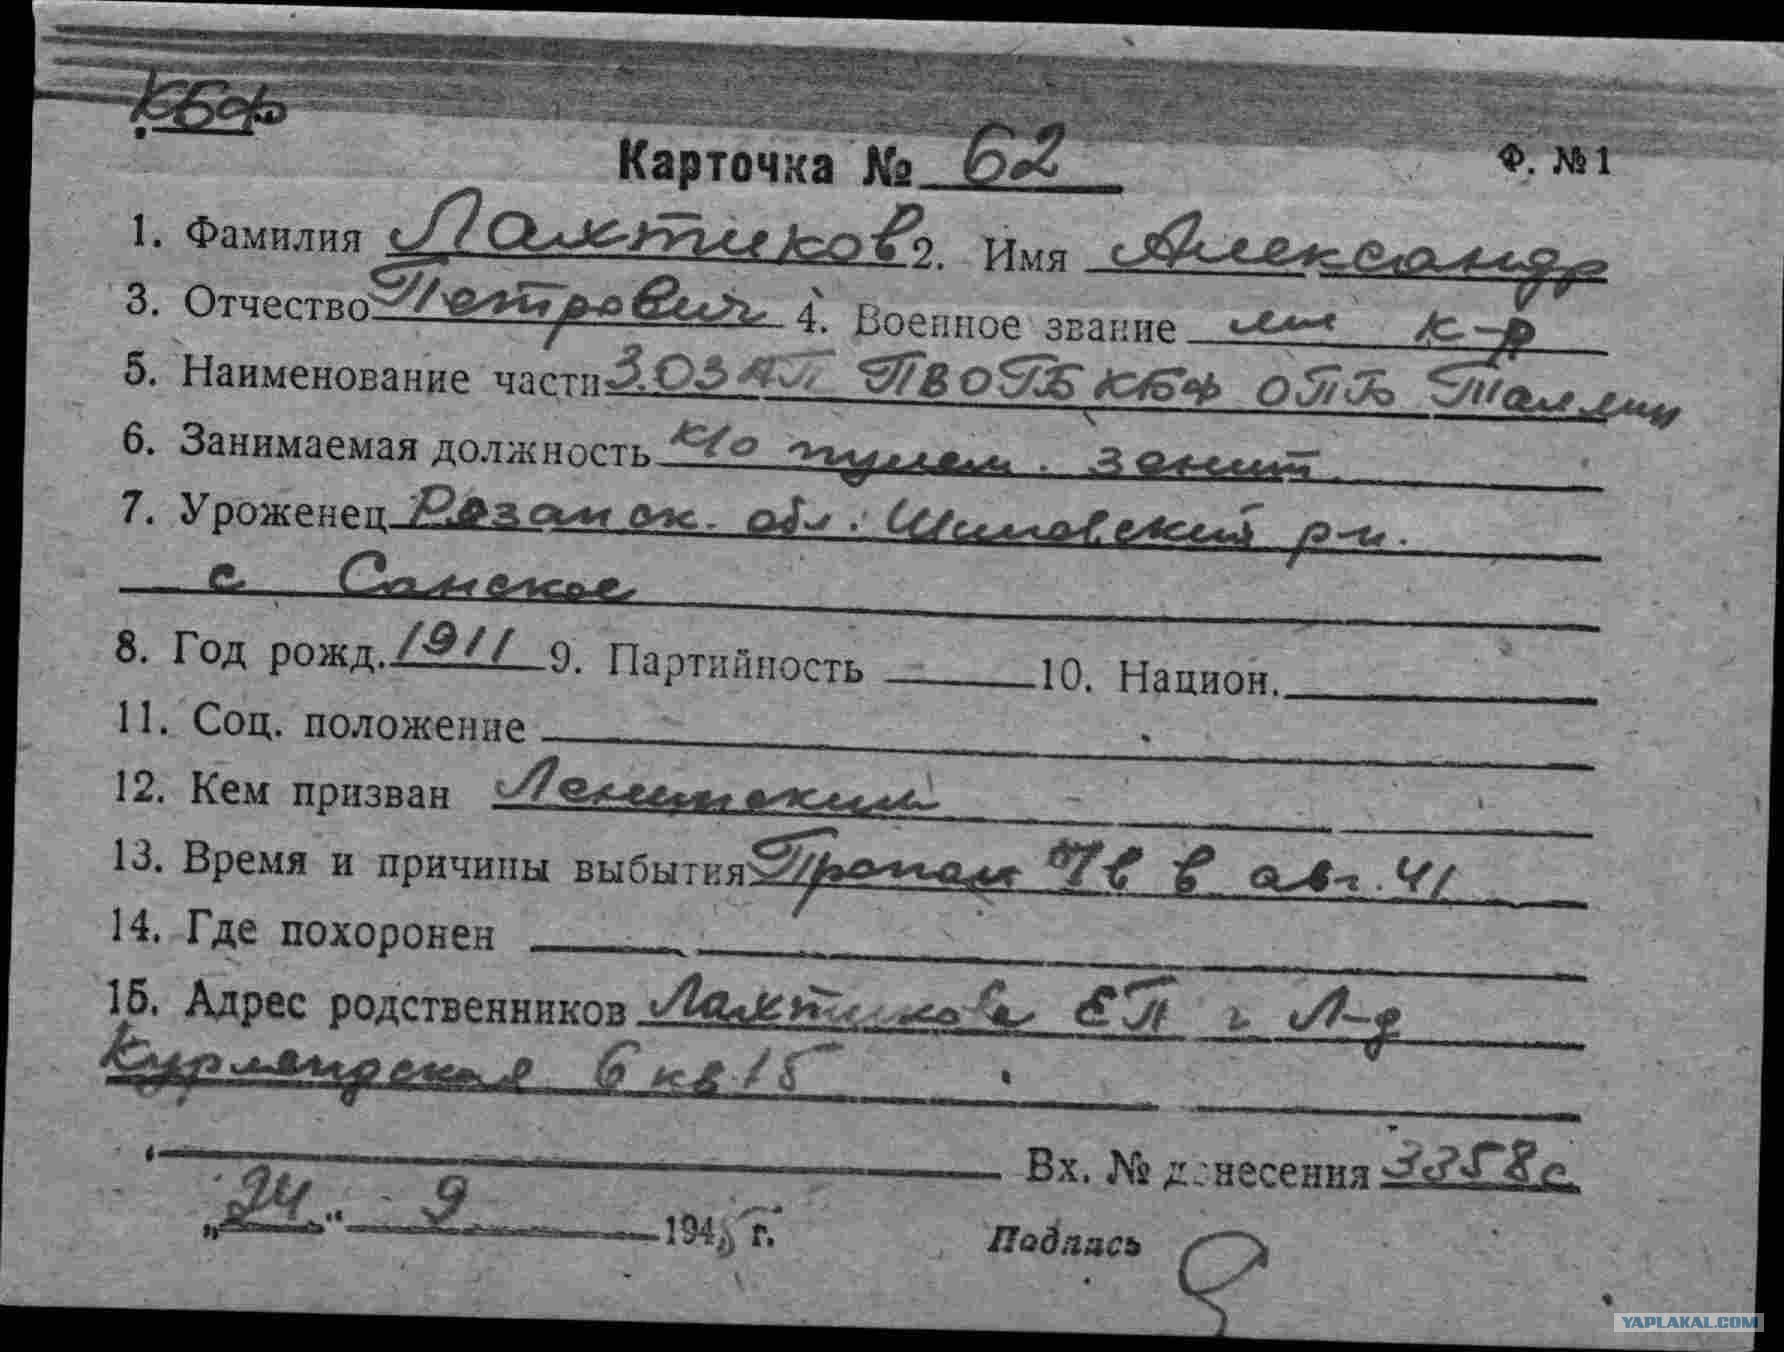 КБФ
Карточка № 62 Ф. №1
1. Фамилия Лахтиков 2. Имя Александр
3. Отчество Петрович 4. Военное звание мл к-р
5. Наименование части 3.ОЗАП ПВО ГБ КБФ ОПБ Таллин
6. Занимаемая должность к/о пулем. зенит.
7. Уроженец Рязанск. обл. Шиловский р-н.
с Санское
8. Год рожд. 1911 9. Партийность 10. Национ.
11. Соц. положение
12. Кем призван Ленинским
13. Время и причины выбытия Пропал в авг. 41
14. Где похоронен
15. Адрес родственников Лахтикова ЕП г Л-д
Курляндская 6 кв 15
Вх. № донесения 3358с
„24" 9 1945 г. Подпись
YAPLAKAL.COM